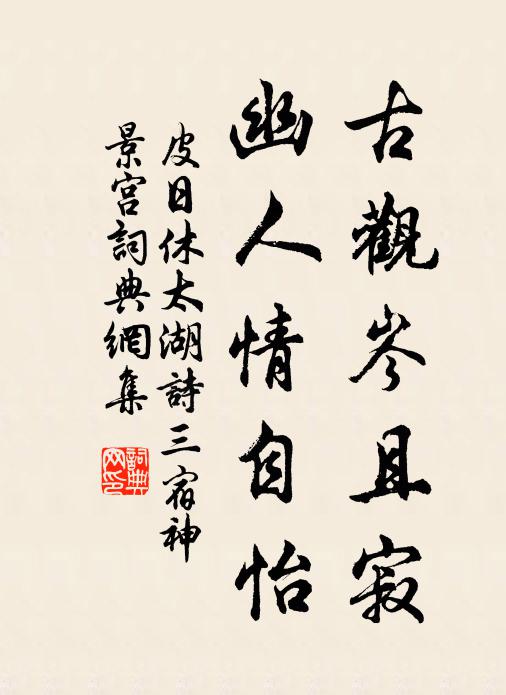 古觀岑且寂
幽人情自怡
皮日休太湖詩三宿神
景宮詞典網集
詞典
网印